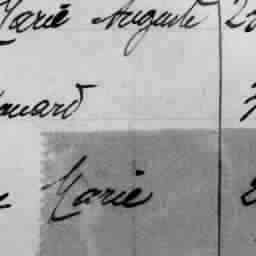 Marie Auguste 2
ouard
Marie 2